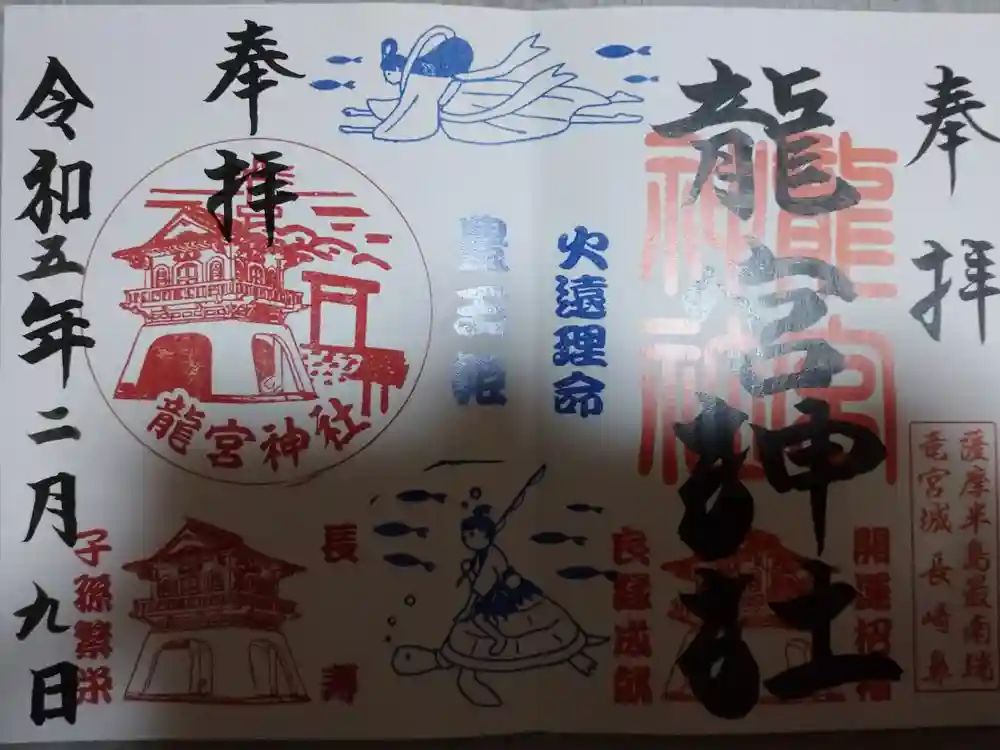 奉拝
龍宮神社
龍宮
神社
薩摩半島最南端
竜宮城 長崎鼻
開運招福
良縁成就
火遠理命
豊玉姫
奉拝
龍宮神社
長寿
子孫繁栄
令和五年二月九日